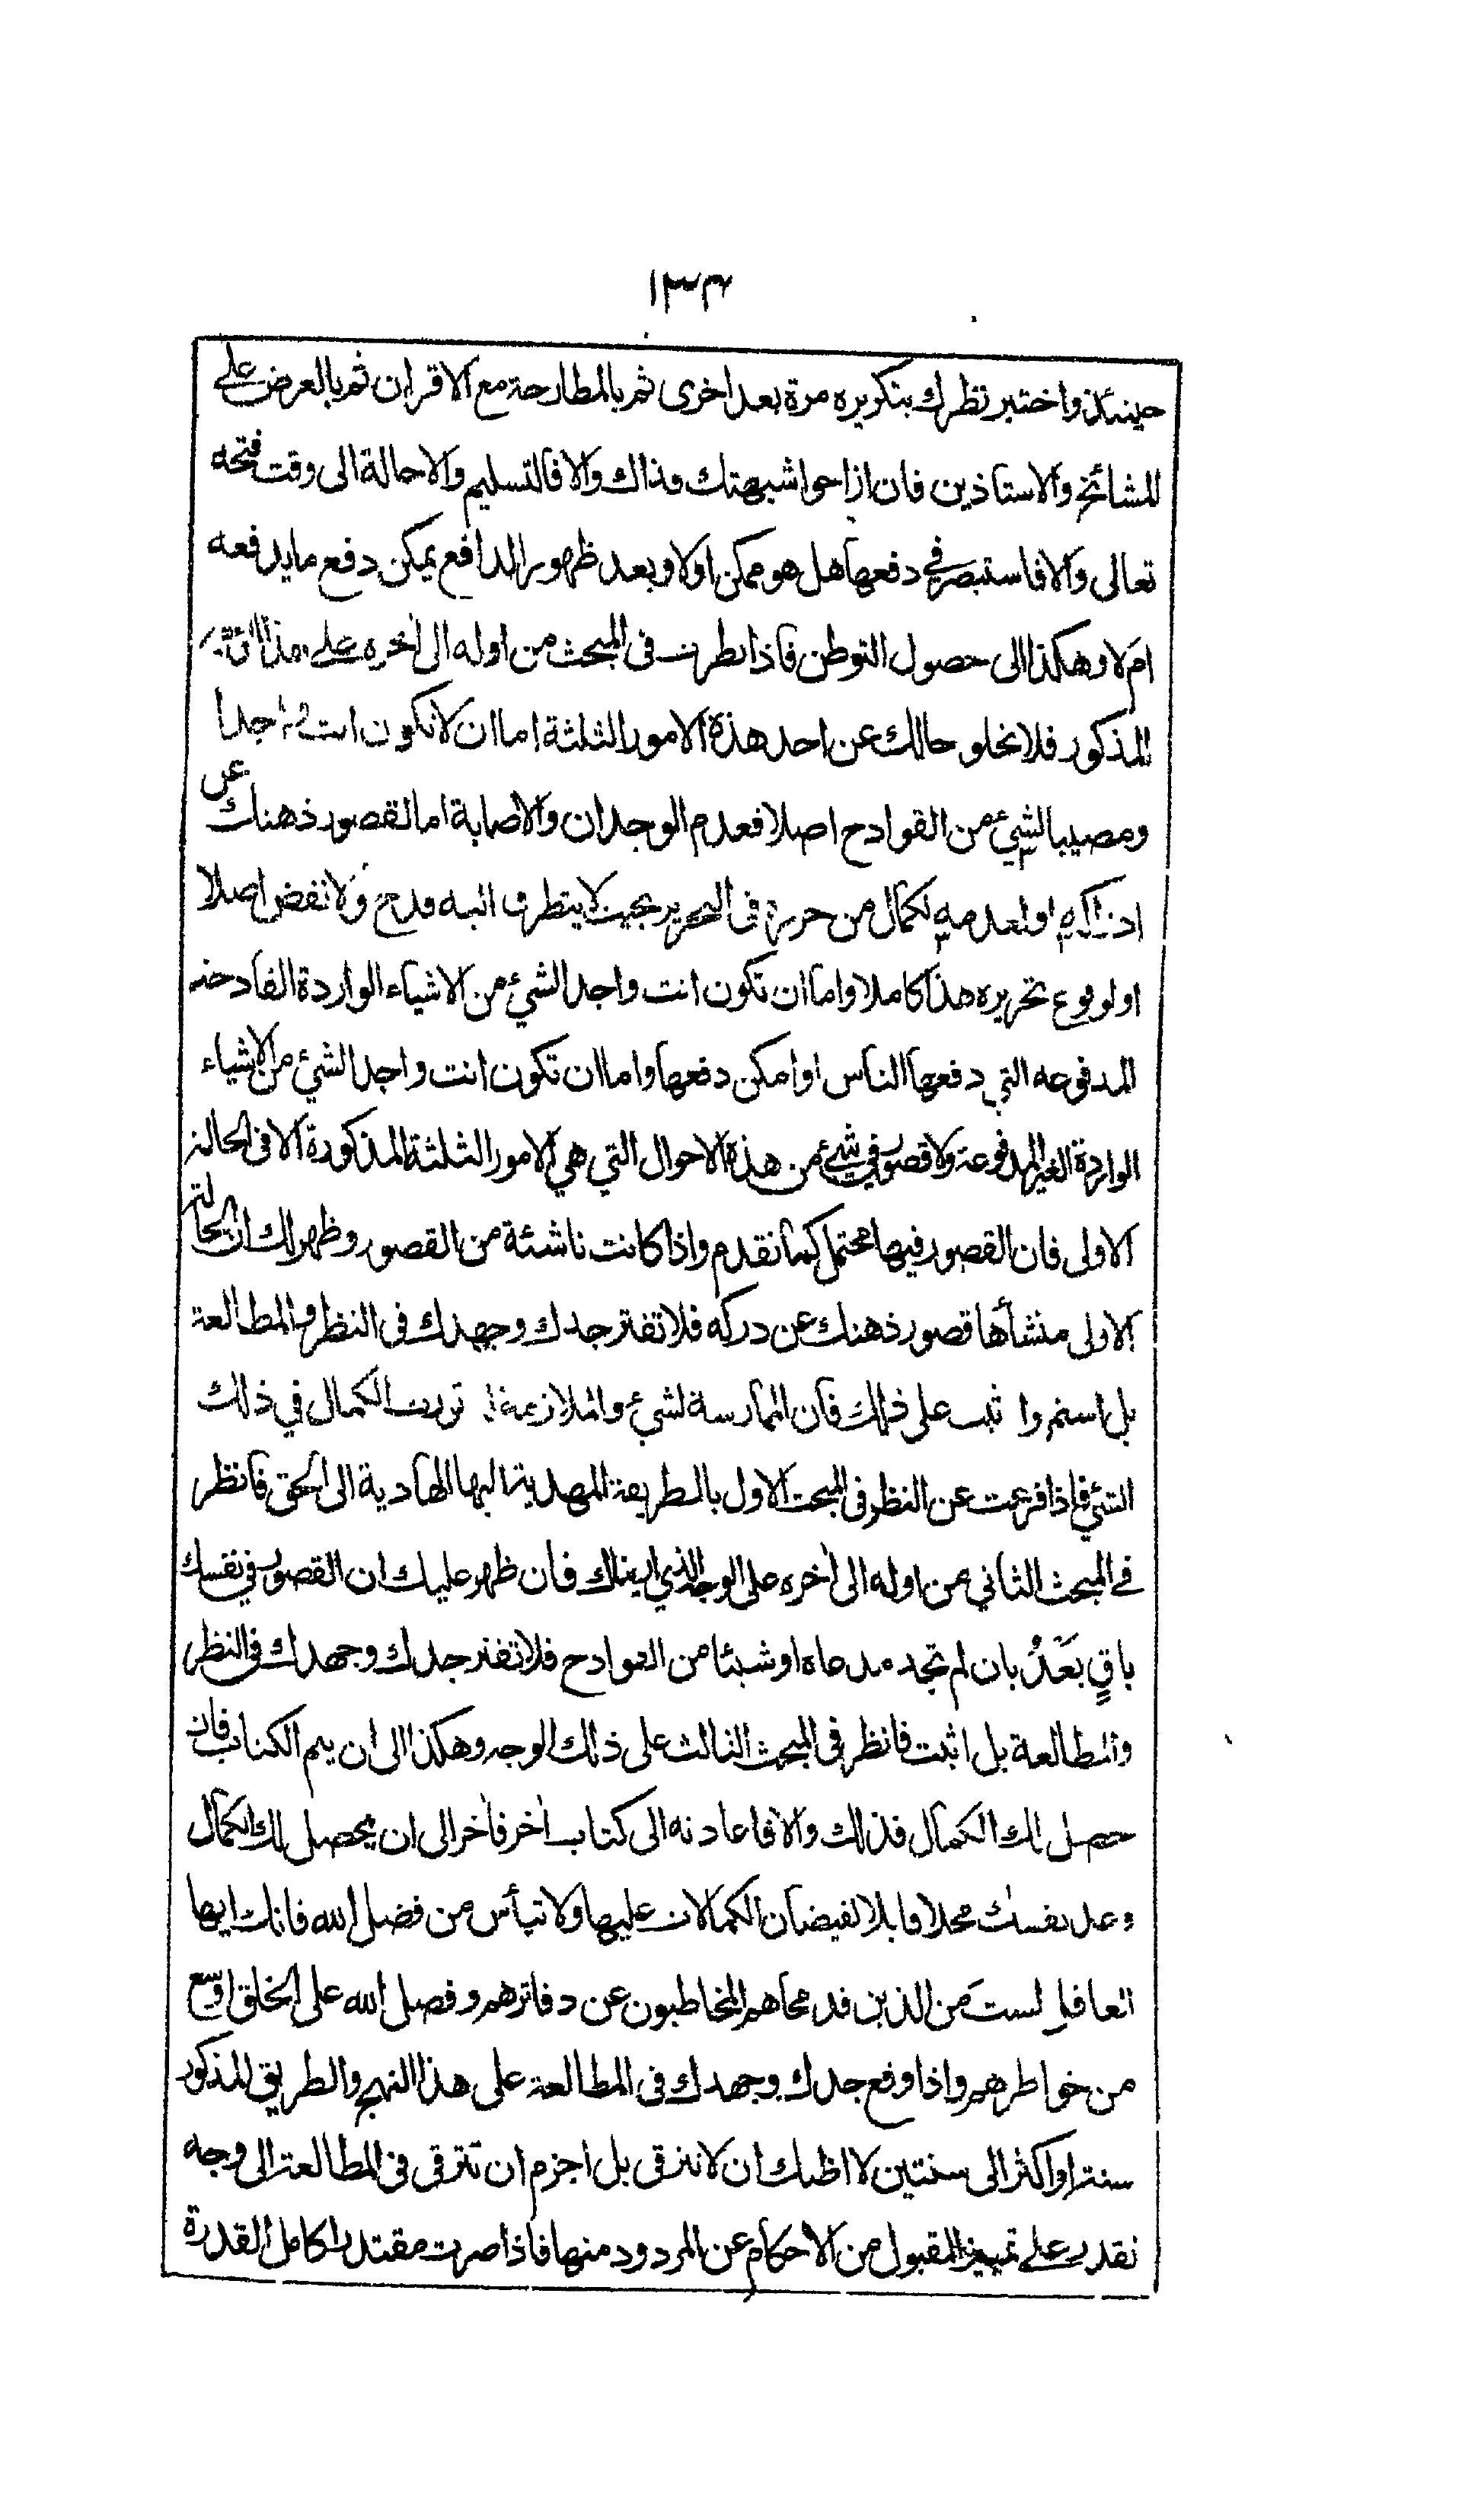 ١٣٤
حينئذ واختبر نظرك بتكريره مرة بعد اخرى ثم بالمطارحة مع الاقران ثم بالعرض على
المشائخ والاستاذين فان ازاحوا شبهتك فذاك والا فالتسليم والاحالة الى وقت فتحه
تعالى والا فاستبصر في دفعها هل هو ممكن اولا وبعد ظهور الدافع يمكن دفع ما يدفعه
ام لا وهكذا الى حصول التوطن فاذا نظرت فى المبحث من اوله الى اخره على هذا
المذكور فلا يخلو حالك عن احد هذة الامور الثلثة اما ان لا تكون انت واجدا
ومصيبا لشيء من القوادح اصلا فعدم الوجدان والاصابة اما لقصور ذهنك عن
لكمال من حرره فى التحرير بحيث لا يتطرق اليه قدح ولا نقض اصلا
او لوقوع تحريره هذا كاملا واما ان تكون انت واجد الشيء من الاشياء الواردة القادحة
المدفوعه التي دفعها الناس او امكن دفعها واما ان تكون انت واجد الشيء من الاشياء
الواردة الغير المدفوعة ولا قصور في شيء من هذة الاحوال التي هي الامور الثلثة المذكورة الا فى الحالة
الاولى فان القصور فيها محتمل كما تقدم واذا كانت ناشئة من القصور وظهر لك ان الحالة
الاولى منشأها قصور ذهنك عن دركه فلا تفتر جدك وجهدك فى النظر والمطالعة
بل استمر واثبت على ذلك فان الممارسة لشيء والملازمة تورث الكمال في ذلك
الشيء فاذا فرغت عن النظر فى المبحث الاول بالطريقة المهدية اليها الهادية الى الحق فانظر
في المبحث الثاني من اوله الى اخره على الوجه الذي اريناك فان ظهر عليك ان القصور في نفسك
باقٍ بعدُ بان لم تجد مدعاه او شيئا من القوادح فلا تفتر جدك وجهدك فى النظر
والمطالعة بل اثبت فانظر فى المبحث الثالث على ذلك الوجه وهكذا الى ان يتم الكتاب فان
حصل لك الكمال فذلك والا فاعادته الى كتاب اخر فاخر الى ان يحصل لك الكمال
وعد نفسك محلا قابلا لفيضان الكمالات عليها ولا تيأس من فضل الله فانك ايها
العاقل لست من الذين قد محاهم المخاطبون عن دفاترهم وفضل الله على الخلق اوسع
من خواطرهم واذا وقع جدك وجهدك فى المطالعة على هذا النهج والطريق المذكور
سنة او اكثر الى سنتين لا اظنك ان لا تترقى بل اجزم ان تترقى فى المطالعة الى وجه
تقدر على تمييز المقبول من الاحكام عن المردود منها فاذا صرت مقتدرا كامل القدرة